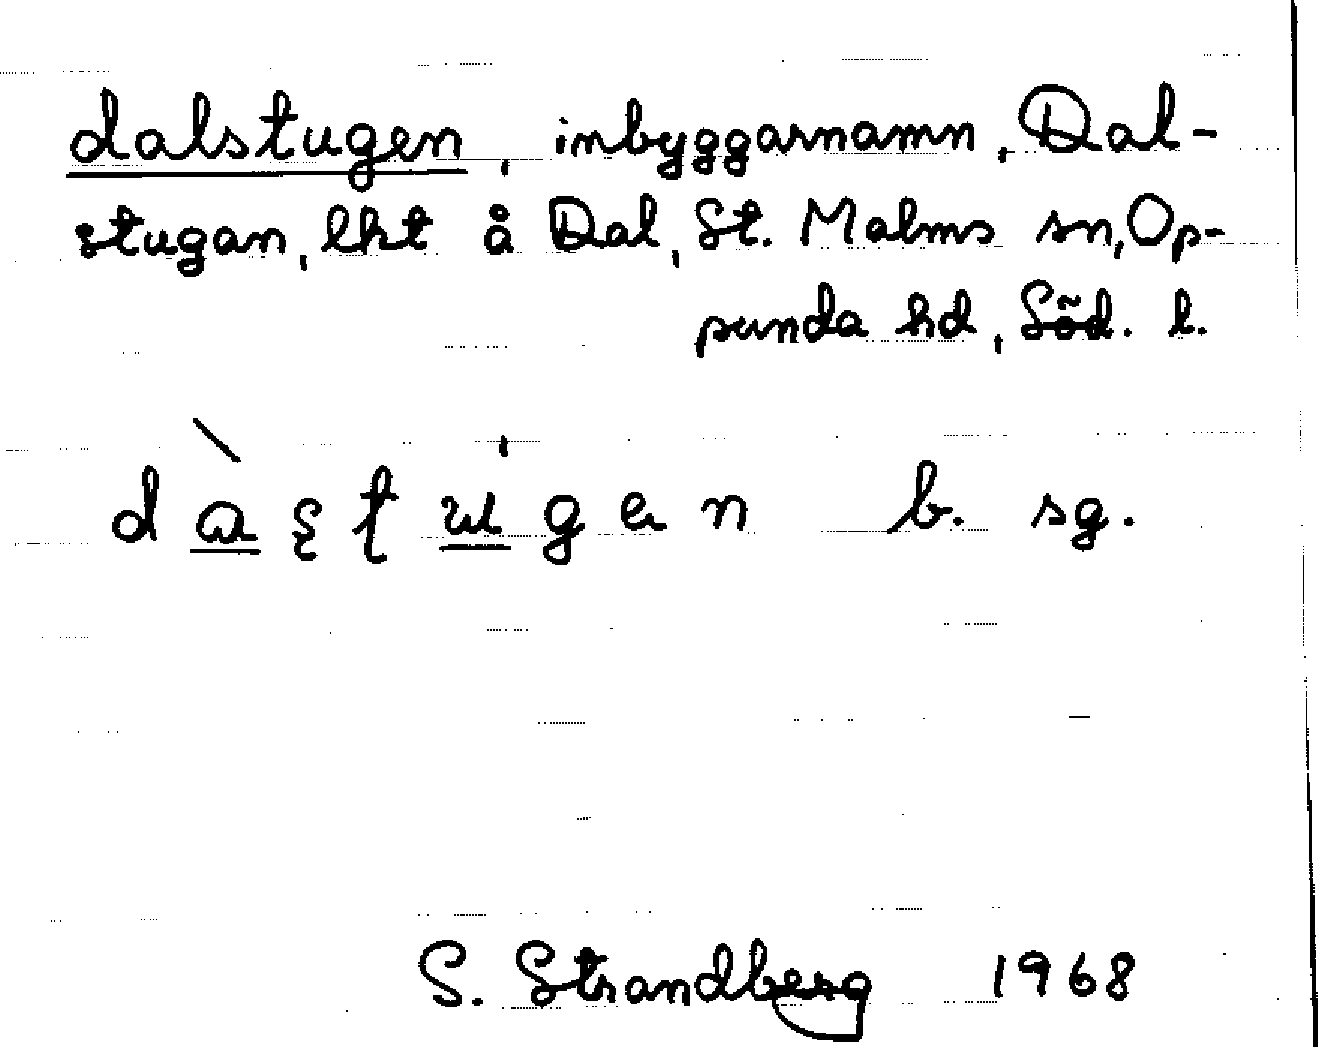 dalstugen, inbyggarnamn, Dal-
stugan, lht å Dal, St. Malms sn, Op-
punda hd, Söd. l.
dàʂʈu̍gen b. sg.
S. Strandberg 1968